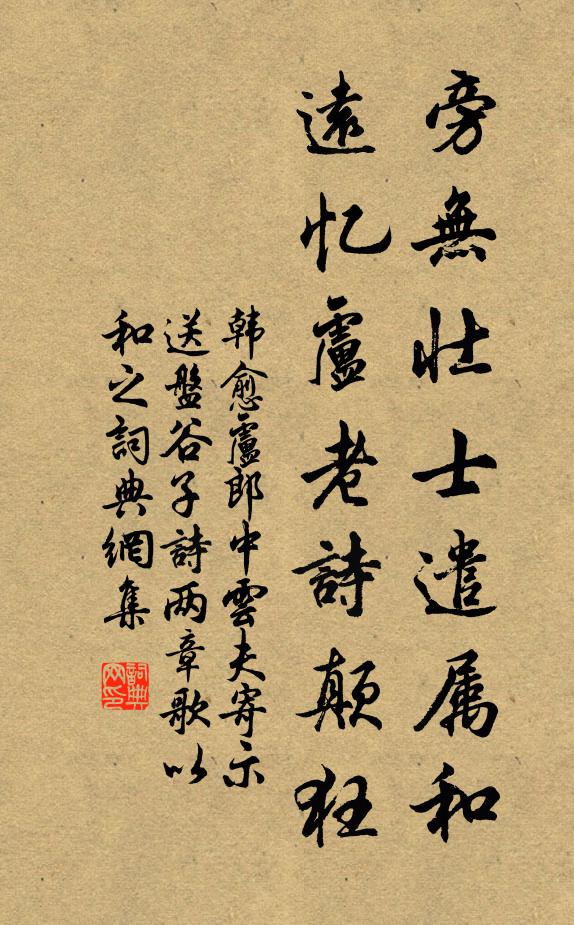 旁無壮士遣属和
遠忆盧老詩颠狂
韩愈盧郎中雲夫寄示
送盤谷子詩两章歌以
和之詞典網集
詞典
网印